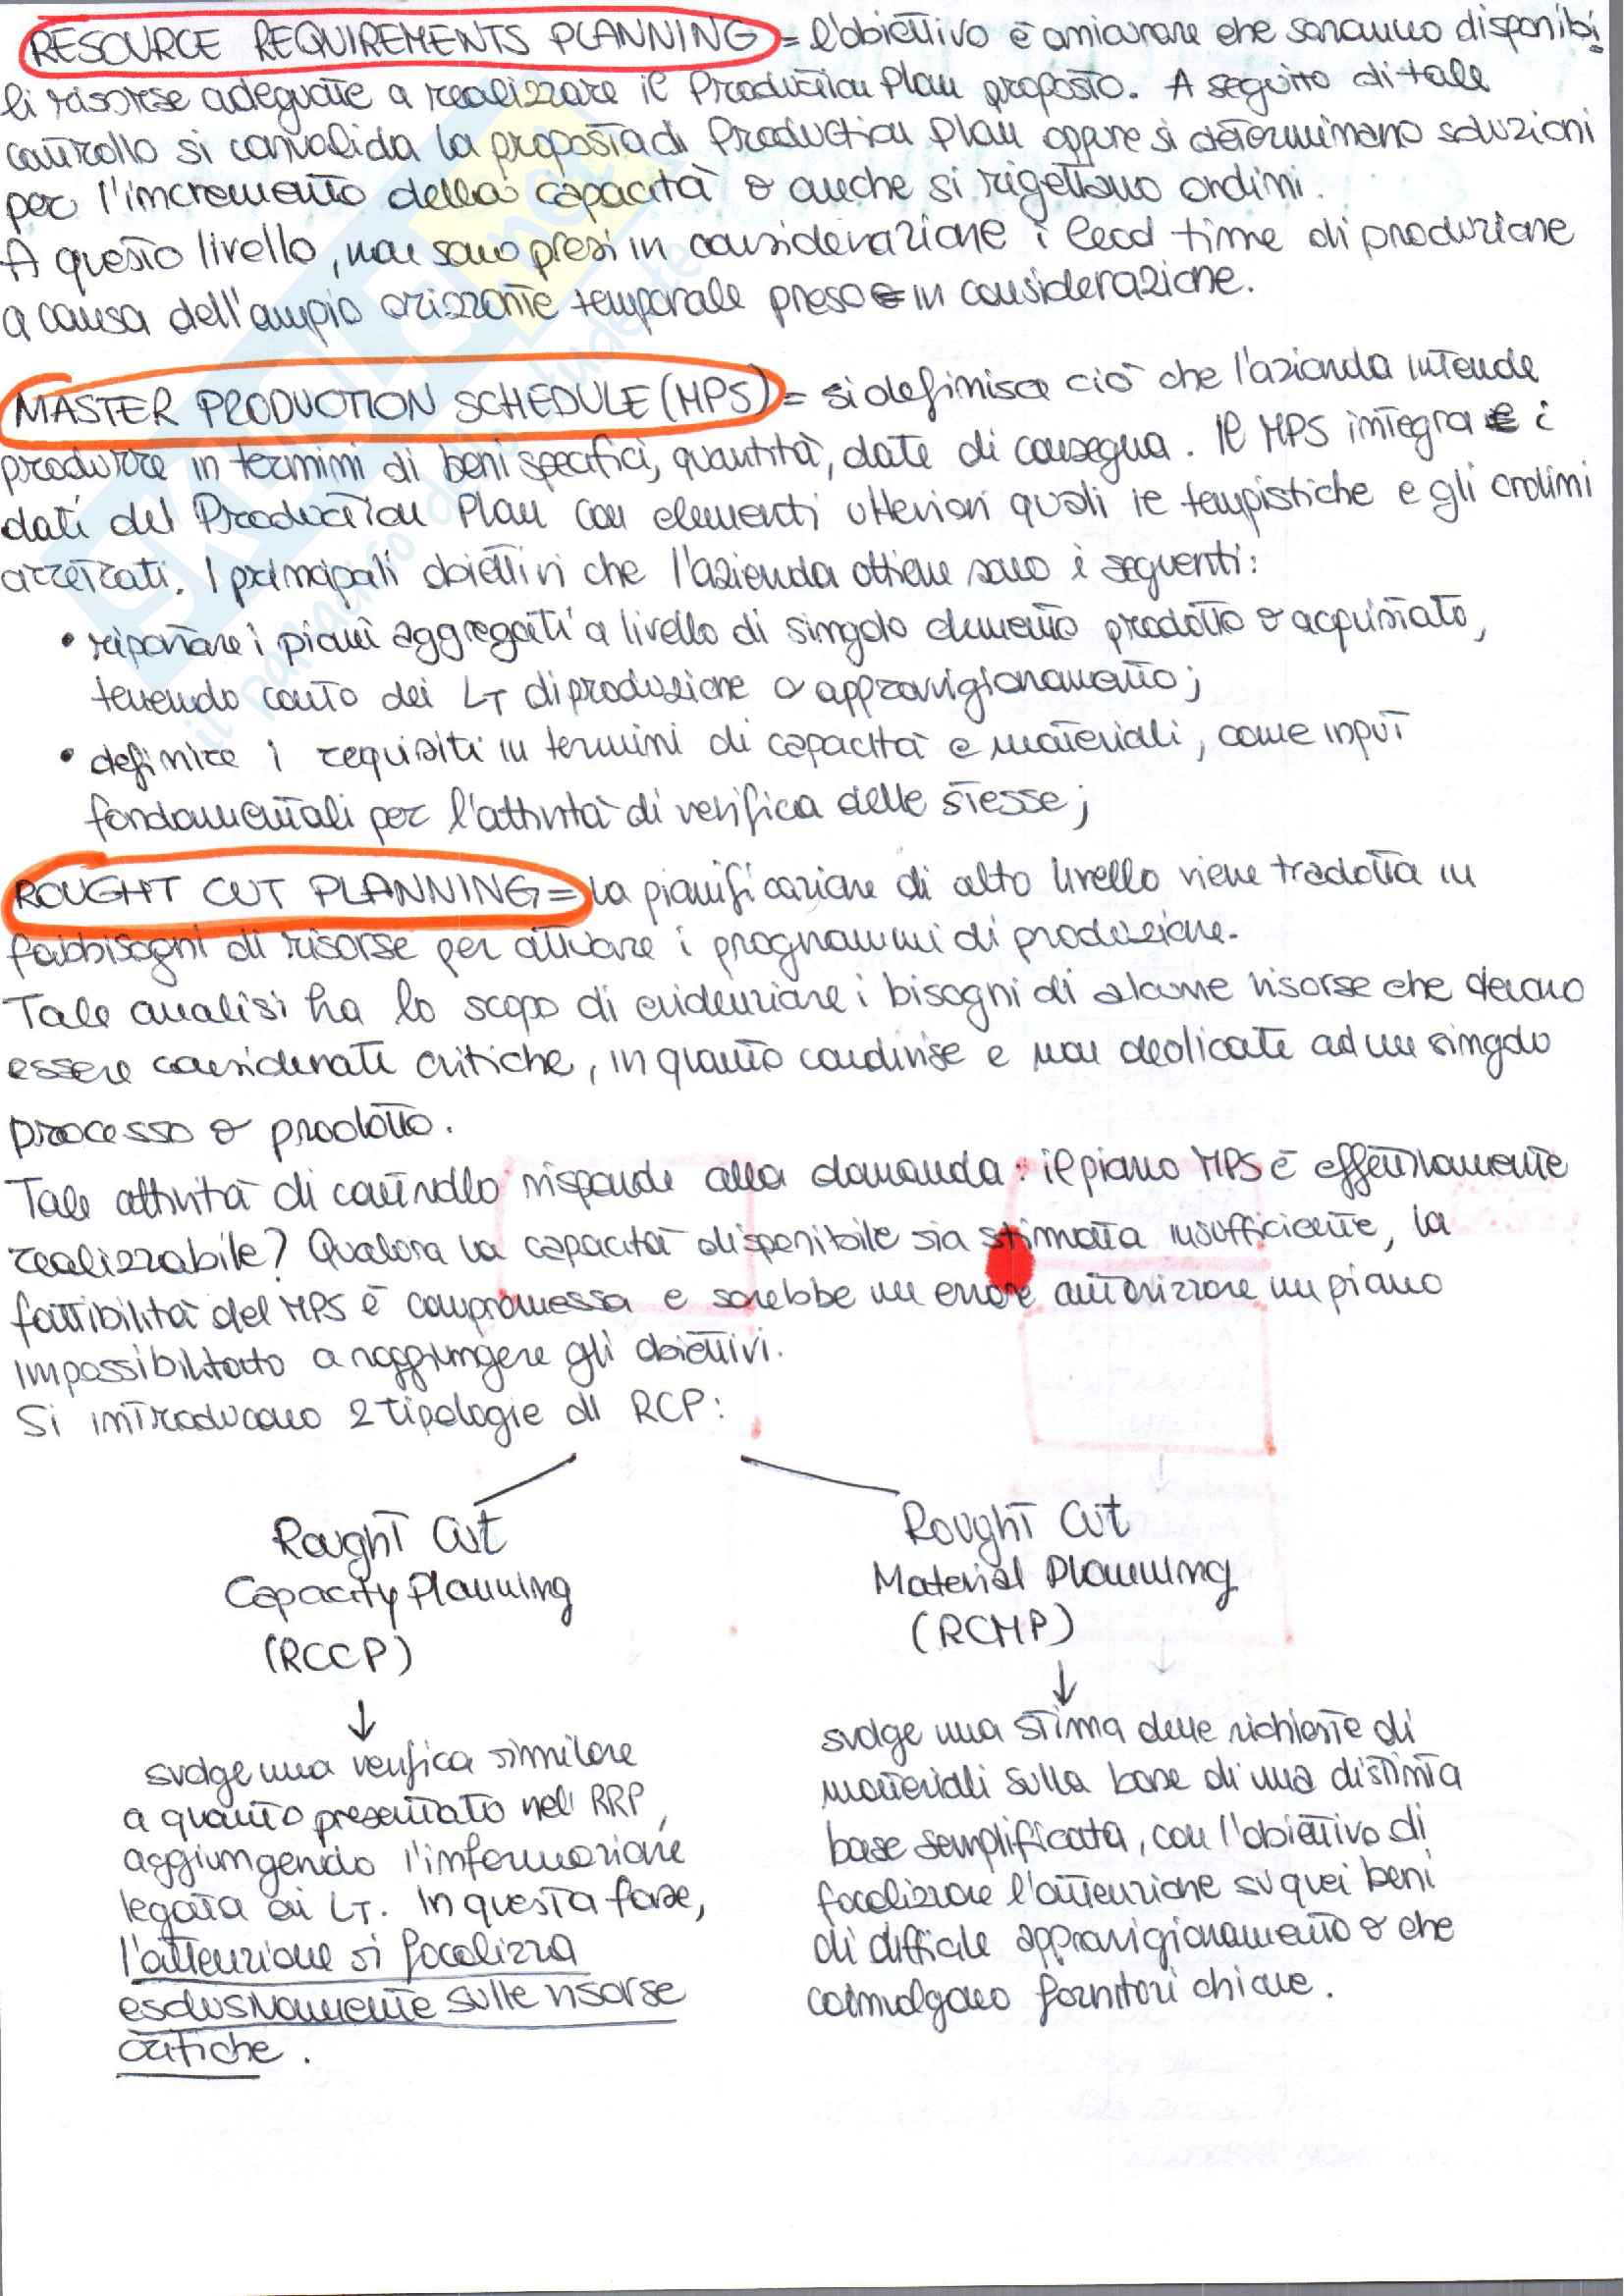 RESOURCE REQUIREMENTS PLANNING = l'obiettivo è assicurare che saranno disponibi
li risorse adeguate a realizzare il Production Plan proposto. A seguito di tale
controllo si convalida la proposta di Production Plan oppure si determinano soluzioni
per l'incremento della capacità o anche si rigettano ordini.
A questo livello, non sono presi in considerazione i lead time di produzione
a causa dell'ampio orizzonte temporale preso in considerazione.
MASTER PRODUCTION SCHEDULE (MPS) = si definisce ciò che l'azienda intende
produrre in termini di beni specifici, quantità, date di consegna. Il MPS integra i
dati del Production Plan con elementi ulteriori quali le tempistiche e gli ordini
arretrati. I principali obiettivi che l'azienda ottiene sono i seguenti:
• riportare i piani aggregati a livello di singolo elemento prodotto o acquistato,
tenendo conto dei LT di produzione o approvvigionamento;
• definire i requisiti in termini di capacità e materiali, come input
fondamentali per l'attività di verifica delle stesse;
ROUGHT CUT PLANNING = la pianificazione di alto livello viene tradotta in
fabbisogni di risorse per attivare i programmi di produzione.
Tale analisi ha lo scopo di evidenziare i bisogni di alcune risorse che devono
essere considerate critiche, in quanto condivise e non dedicate ad un singolo
processo o prodotto.
Tale attività di controllo risponde alla domanda: il piano MPS è effettivamente
realizzabile? Qualora la capacità disponibile sia stimata insufficiente, la
fattibilità del MPS è compromessa e sarebbe un errore autorizzare un piano
impossibilitato a raggiungere gli obiettivi.
Si introducono 2 tipologie di RCP:
Rought Cut
Capacity Planning
(RCCP)
svolge una verifica similare
a quanto presentato nell'RRP,
aggiungendo l'informazione
legata ai LT. In questa fase,
l'attenzione si focalizza
esclusivamente sulle risorse
critiche.
Rought Cut
Material Planning
(RCMP)
svolge una stima delle richieste di
materiali sulla base di una distinta
base semplificata, con l'obiettivo di
focalizzare l'attenzione su quei beni
di difficile approvvigionamento o che
coinvolgono fornitori chiave.